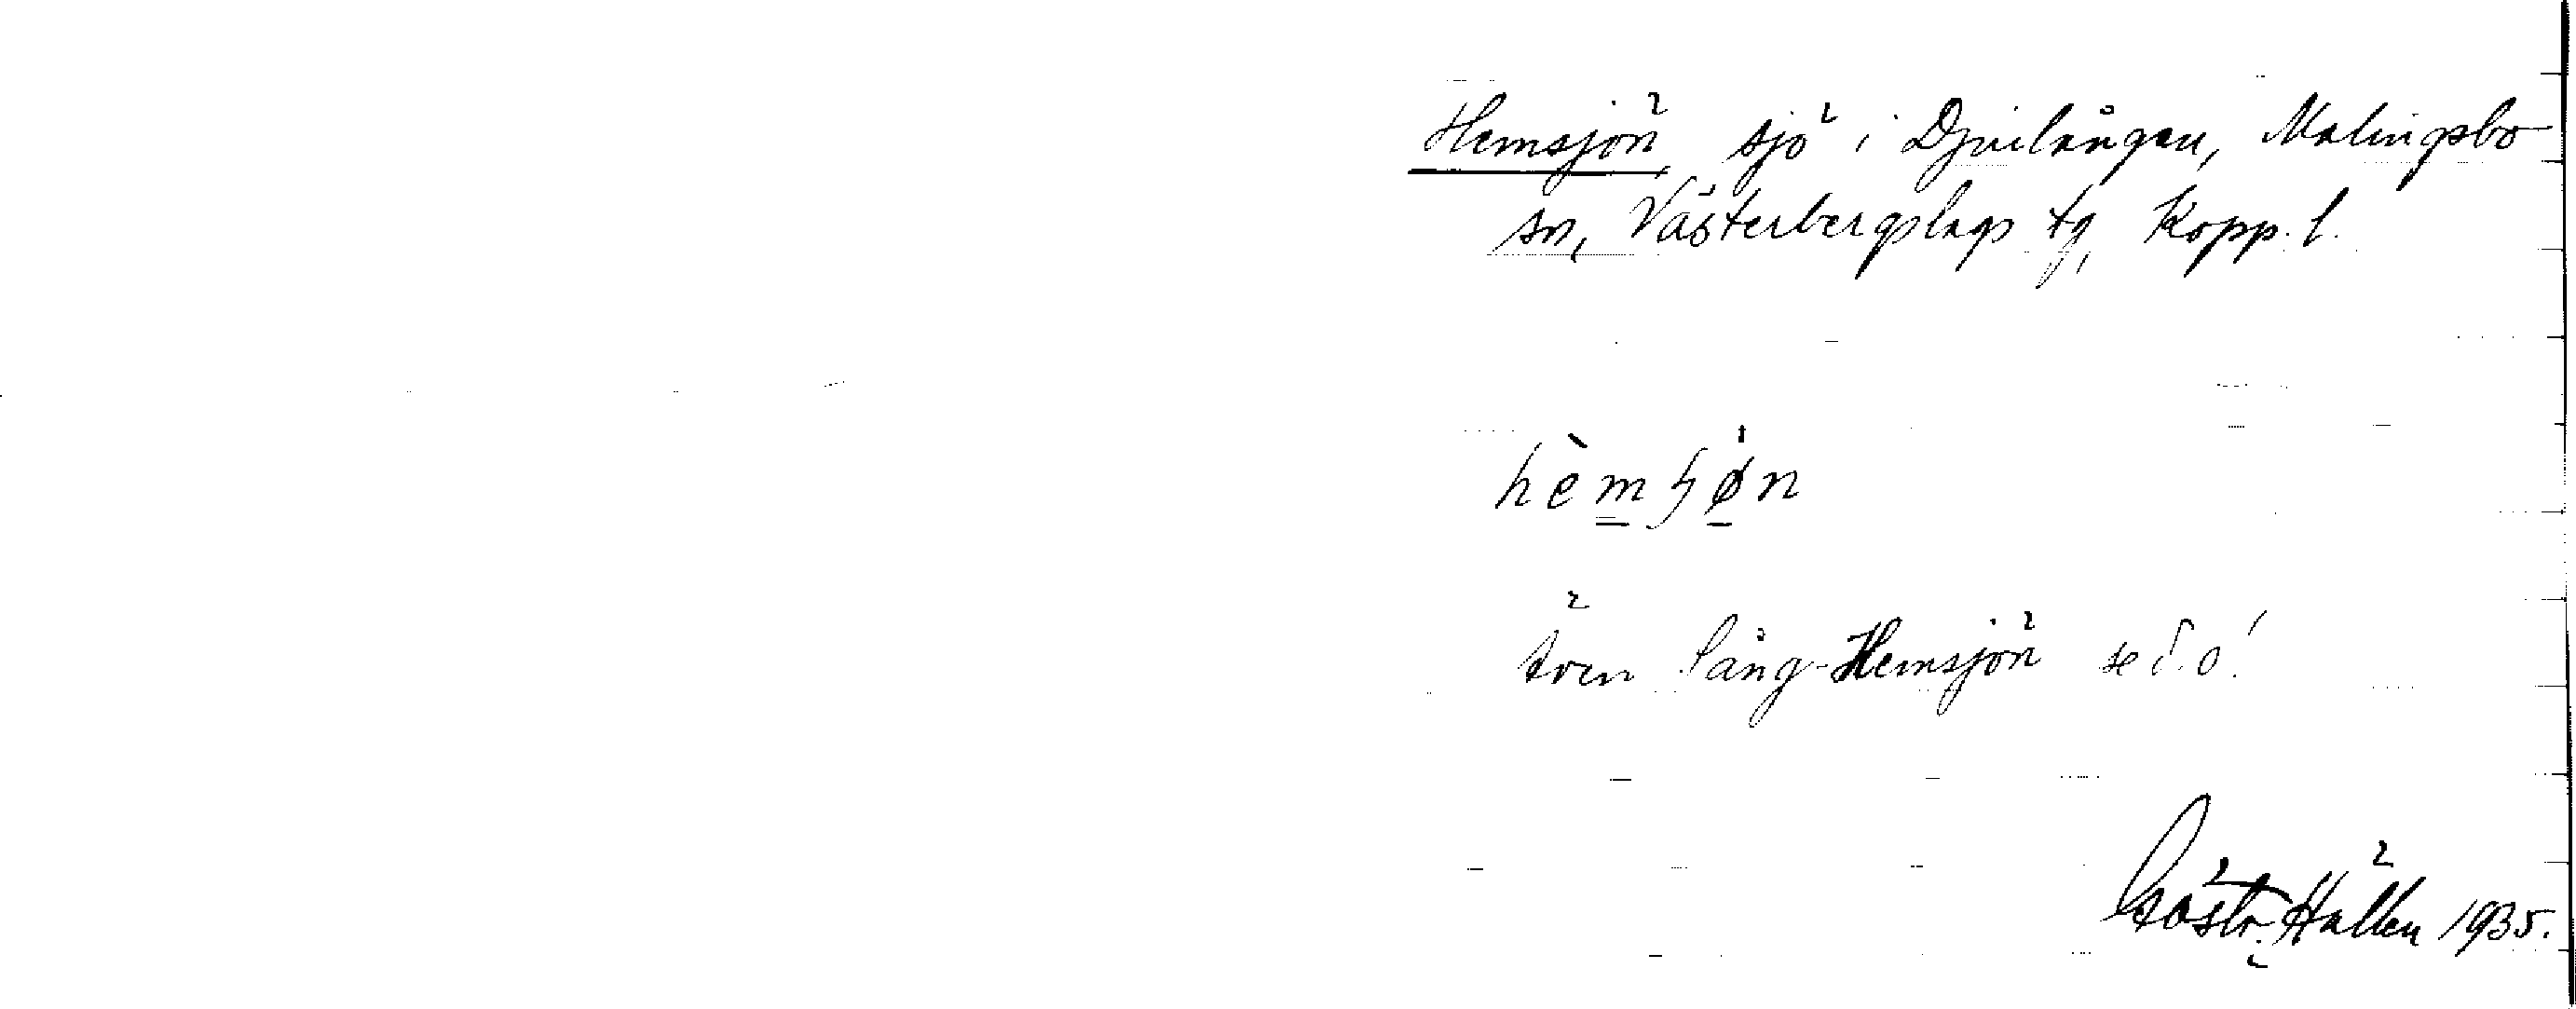 Hemsjön, sjö i Djurlången, Malingsbo
sn, Västerbergslags tg, Kopp. l.
hèmʃø̀n
även Lång-Hemsjön se d. o!
Göstr. Hällen 1935.